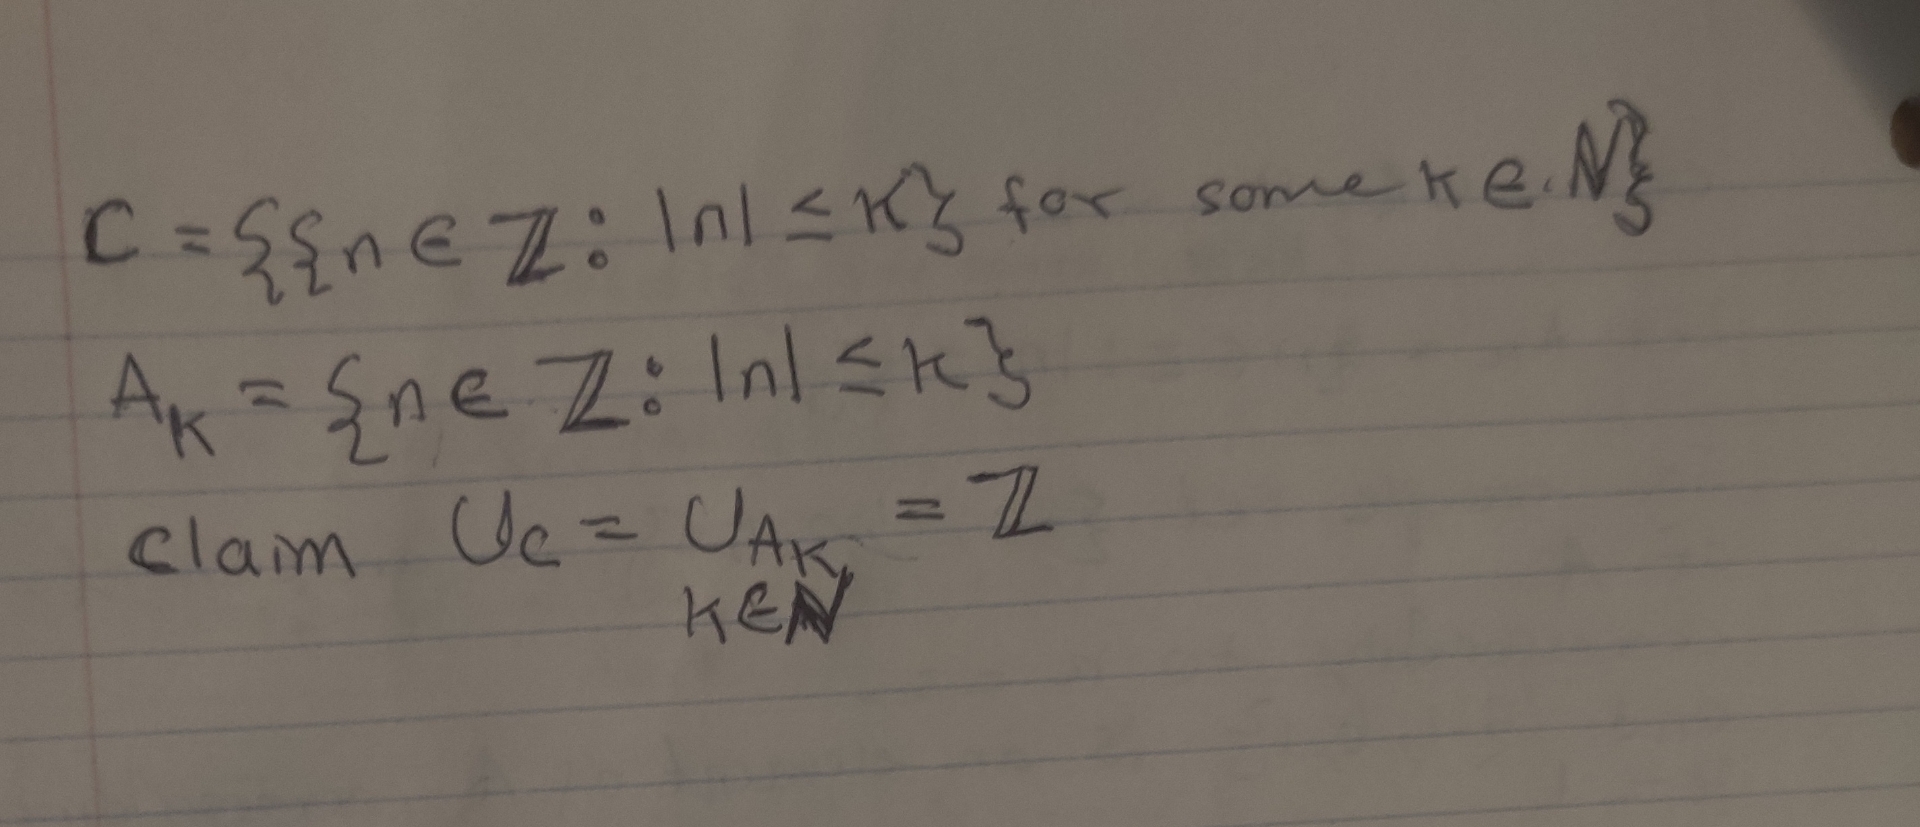 C = {{n ∈ ℤ : |n| ≤ k} for some k ∈ ℕ}
A_k = {n ∈ ℤ : |n| ≤ k}
claim ∪_C = ∪_{A_k} = ℤ
k∈ℕ